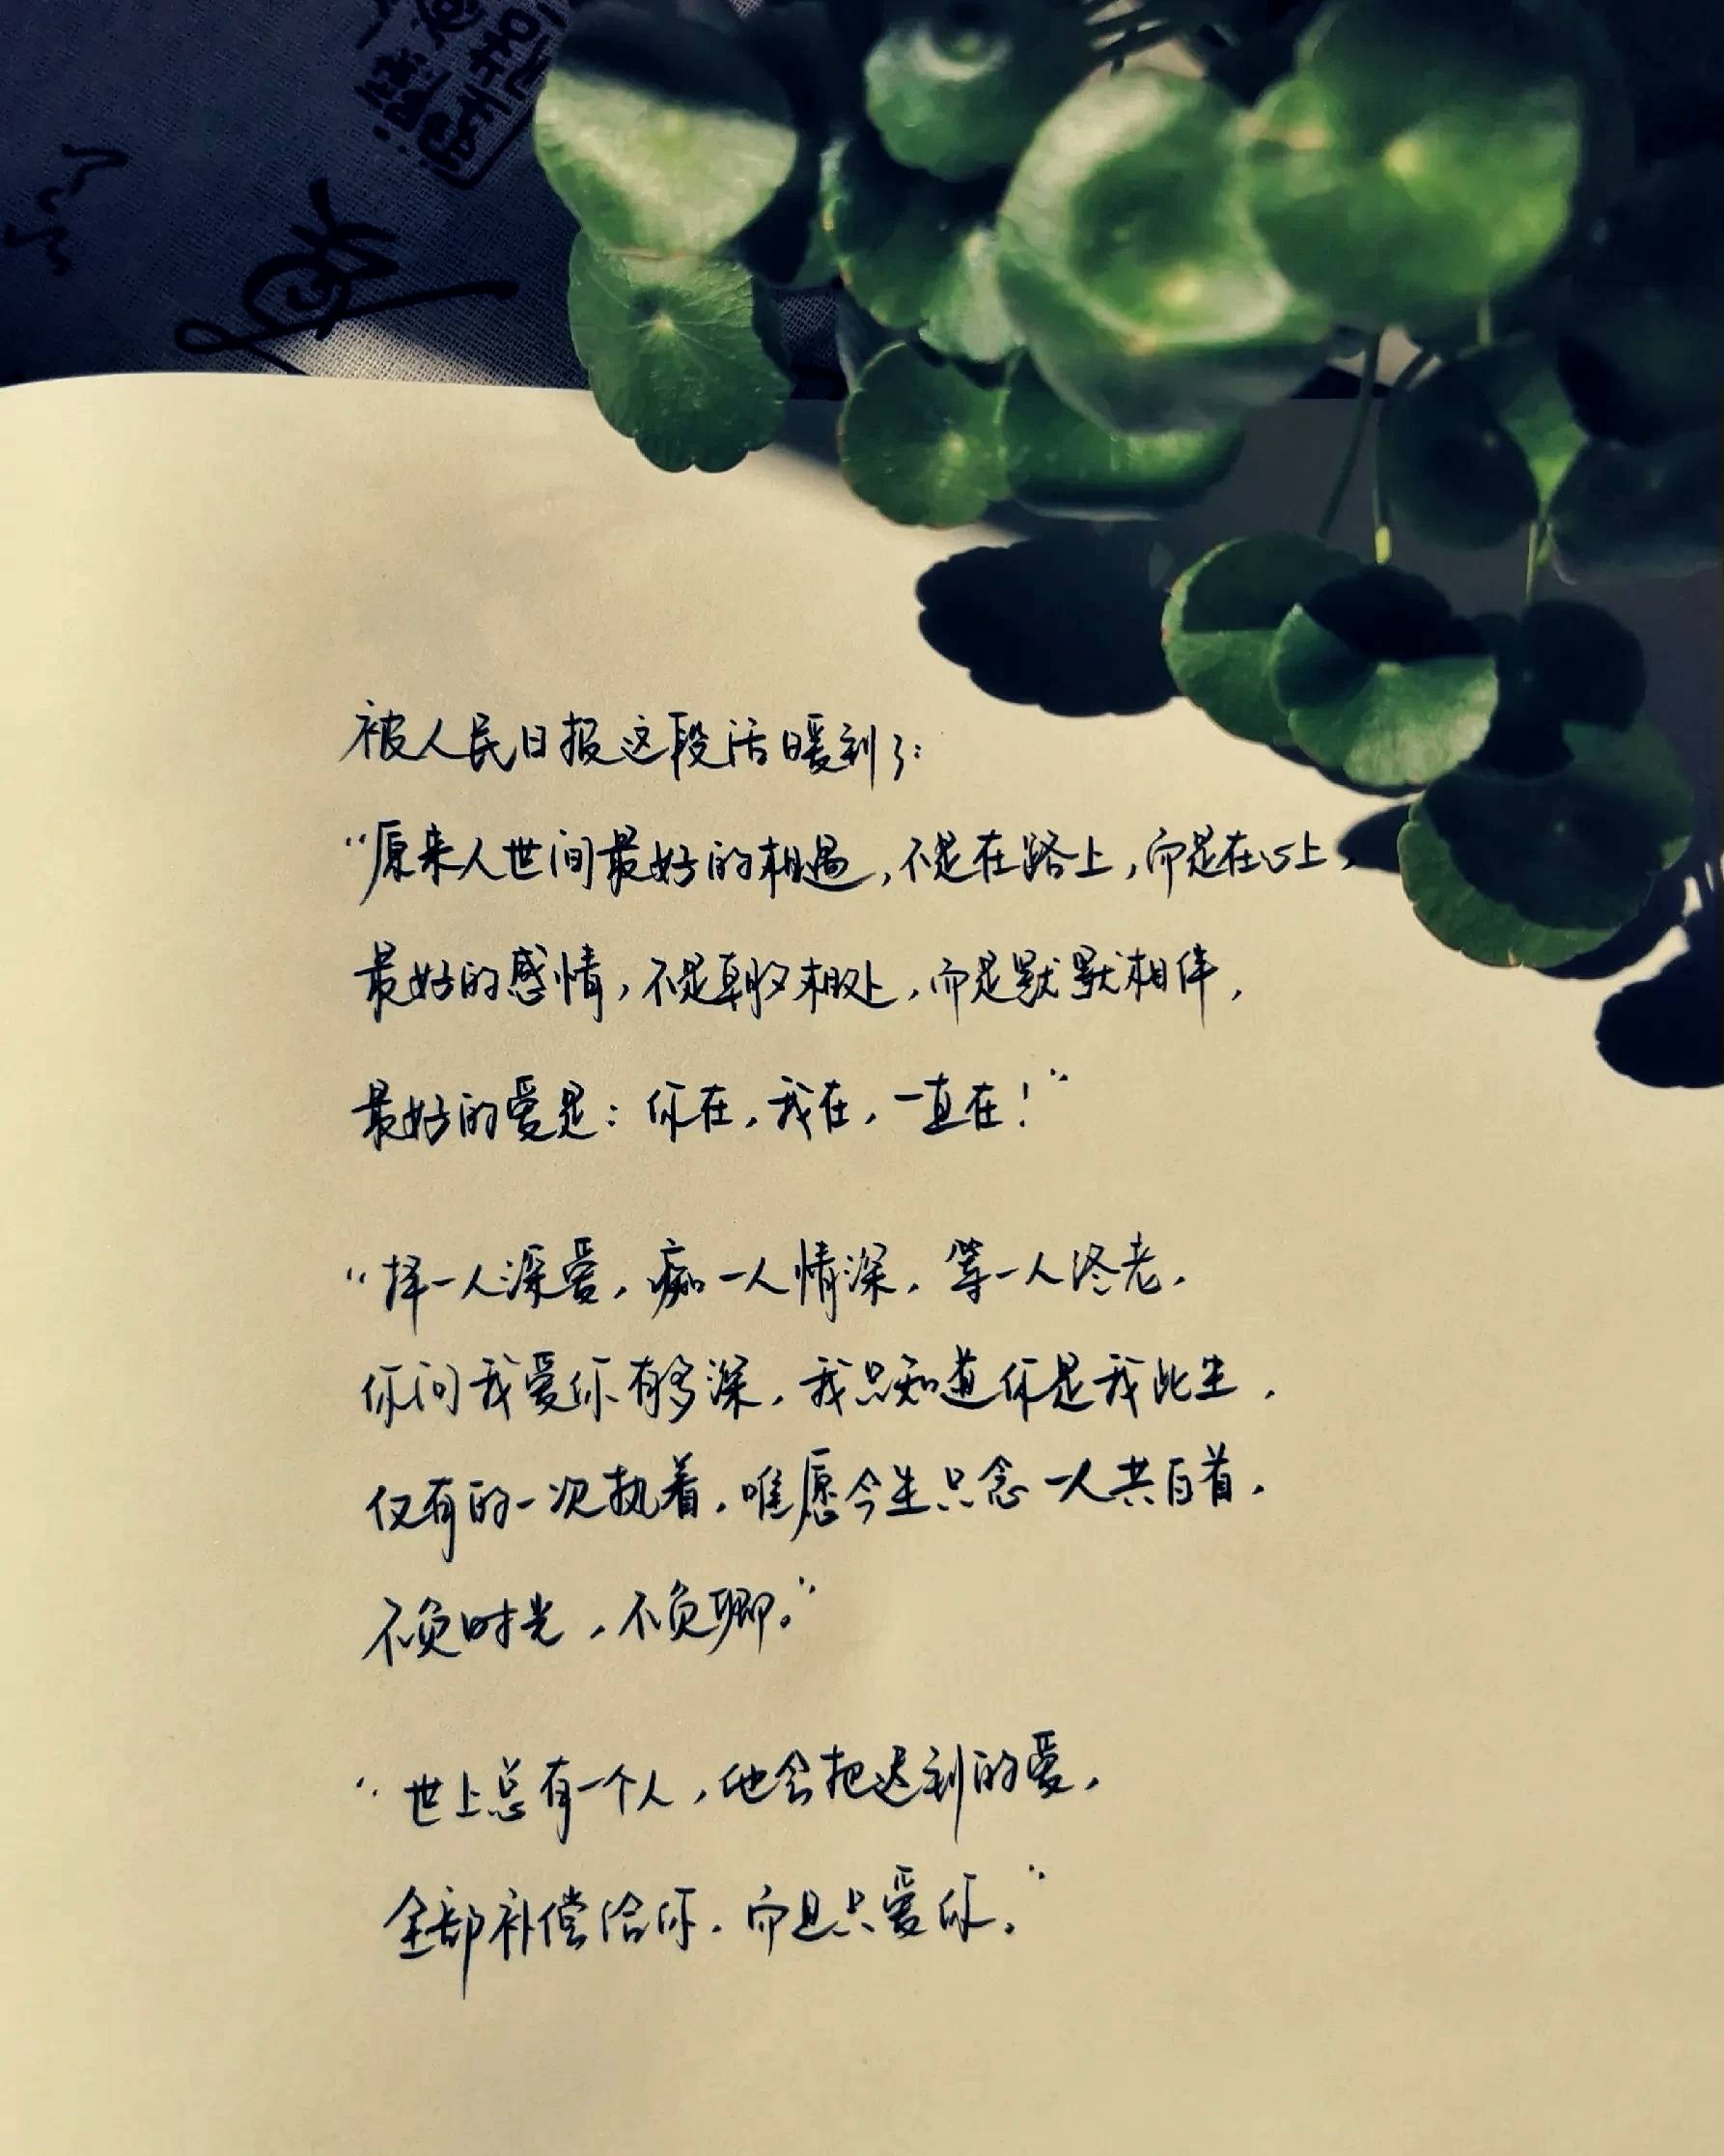 被人民日报这段话暖到了：
“原来人世间最好的相遇，不是在路上，而是在心上，
最好的感情，不是朝夕相处，而是默默相伴，
最好的爱是：你在，我在，一直在！”
“择一人深爱，痴一人情深，等一人终老，
你问我爱你有多深，我只知道你是我此生，
仅有的一次执着，唯愿今生只念一人共白首，
不负时光，不负卿。”
“世上总有一个人，他会把迟到的爱，
全部补偿给你，而且只爱你。”